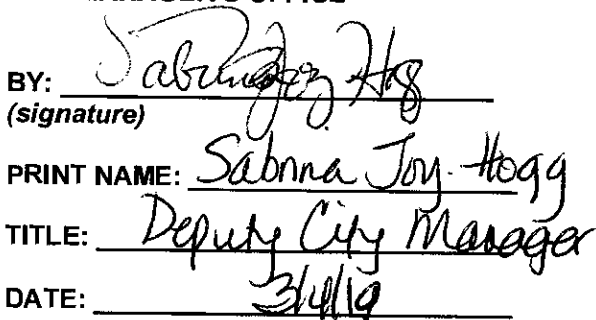 MANAGER'S OFFICE
BY: Sabrina Joy Hogg
(signature)
PRINT NAME: Sabrina Joy-Hogg
TITLE: Deputy City Manager
DATE: 3/4/19